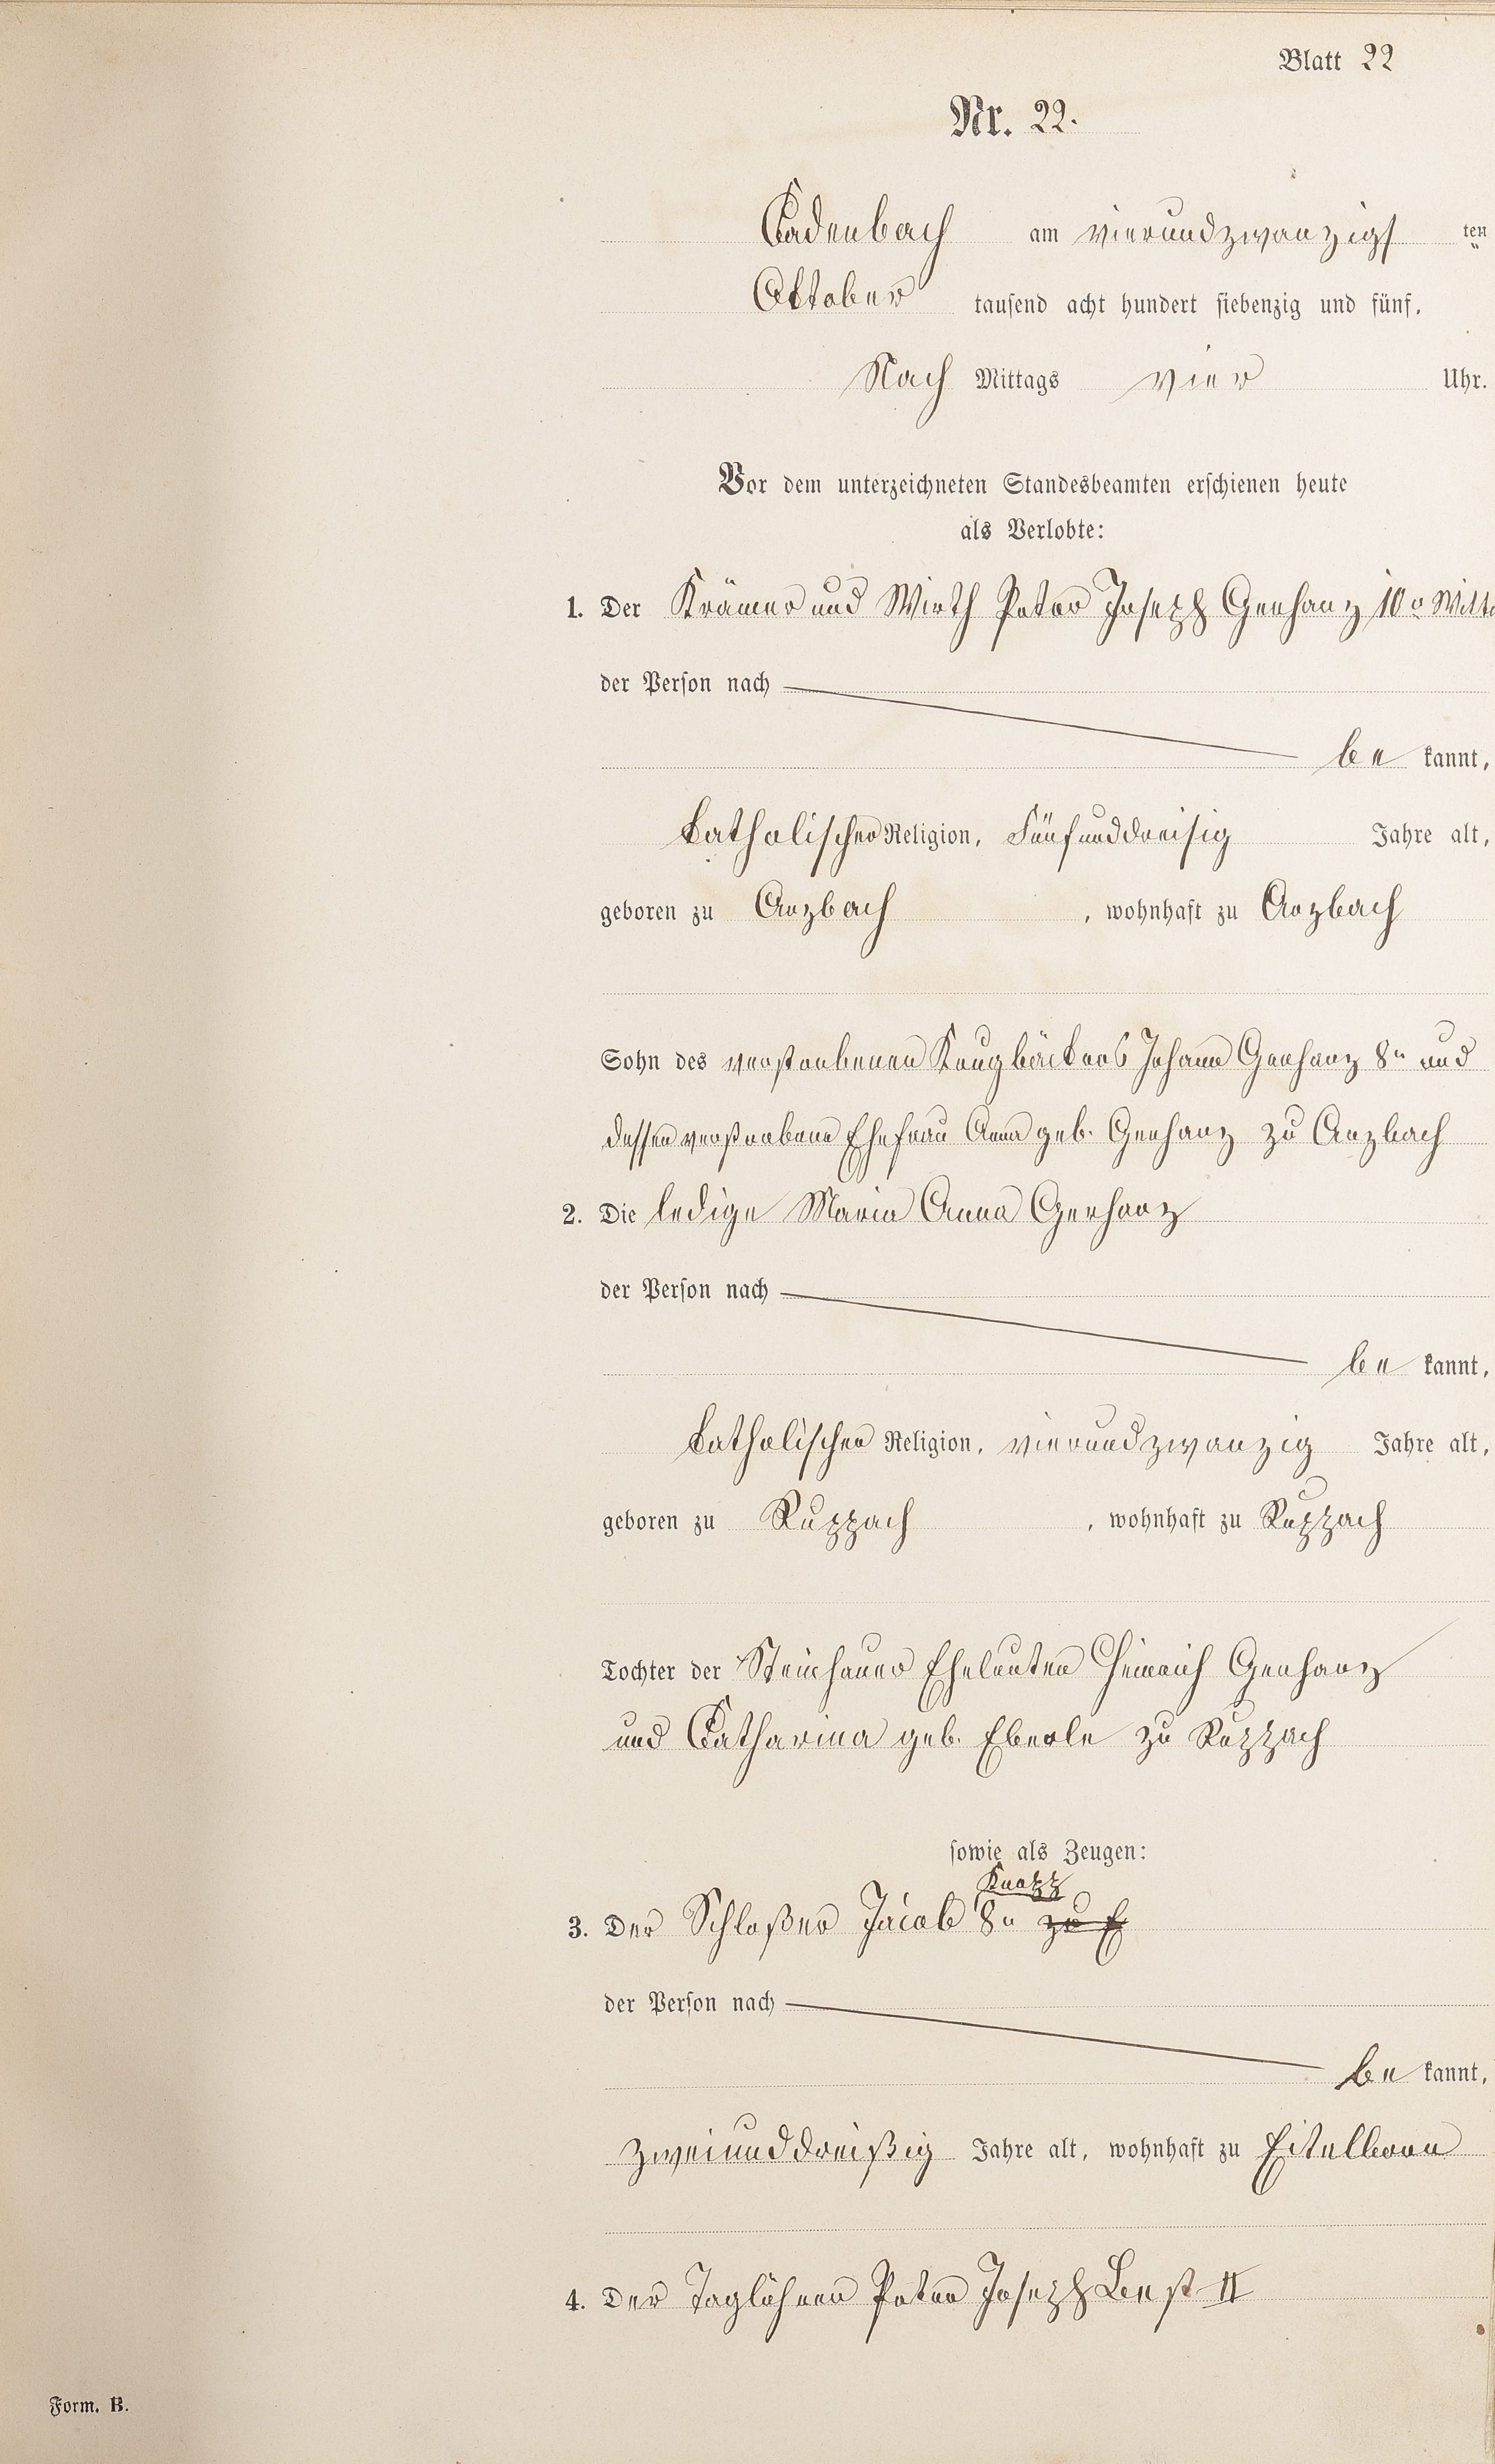 Blatt 22
Nr. 22.
Cadenbach am vierundzwanzigs ten
Oktober tausend acht hundert siebenzig und fünf,
Nach Mittags vier Uhr.
Vor dem unterzeichneten Standesbeamten erschienen heute
als Verlobte:
1. Der Krämer und Wirth Peter Joseph Gerharz 10r
der Person nach
be kannt,
katholischer Religion, Fünfunddreisig Jahre alt,
geboren zu Arzbach, wohnhaft zu Arzbach
Sohn des verstorbenen Krugbäckers Johann Gerharz 8r und
dessen verstorbene Ehefrau Anna geb. Gerharz zu Arzbach
2. Die ledige Maria Anna Gerharz
der Person nach
be kannt,
katholischer Religion, vierundzwanzig Jahre alt,
geboren zu Ruppach, wohnhaft zu Ruppach
Tochter der Steinhauer Eheleuten Heinrich Gerharz
und Catharina geb. Eberle zu Ruppach
sowie als Zeugen:
Knopp
3. Der Schloßer Jacob 8r zu E
der Person nach
be kannt,
zweiunddreißig Jahre alt, wohnhaft zu Eitelborn
4. Der Taglöhner Peter Joseph II
Form. B.